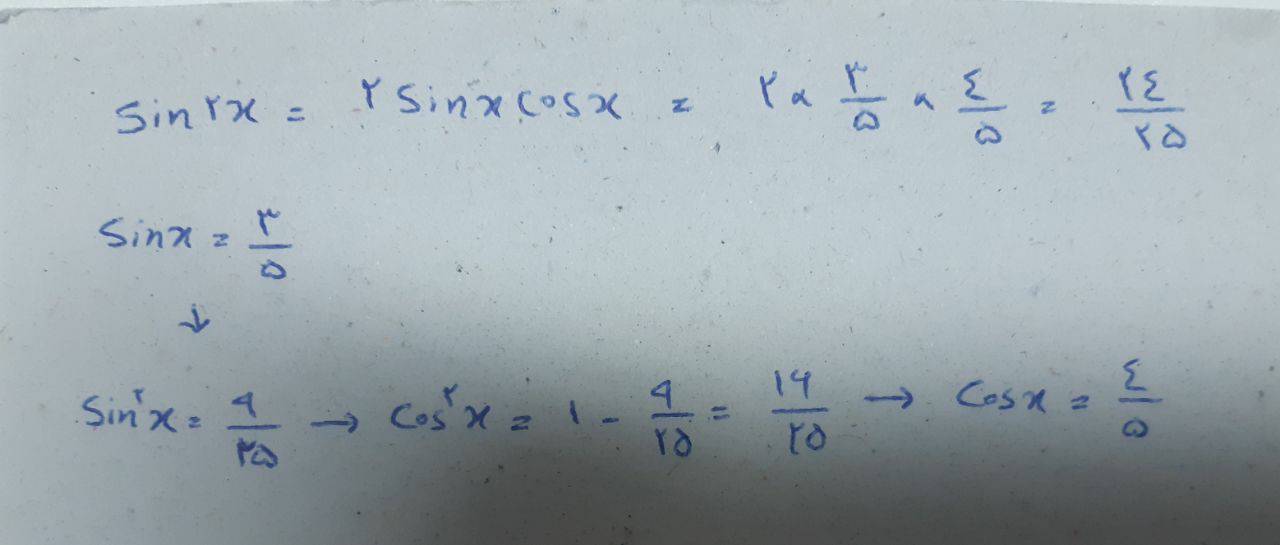 sin۲x = ۲ sinx cosx = ۲ × ۳/۵ × ۴/۵ = ۲۴/۲۵
sinx = ۳/۵
↓
sin²x = ۹/۲۵ → cos²x = ۱ - ۹/۲۵ = ۱۶/۲۵ → cosx = ۴/۵